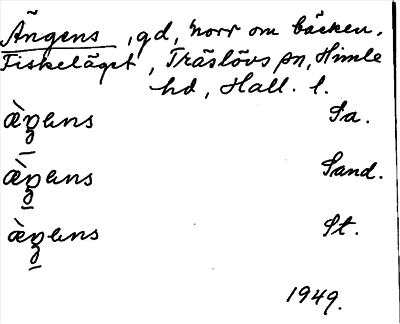 Ängens, gd, norr om bäcken,
Fiskeläget, Träslövs sn, Himle
hd, Hall. l.
æ̀ŋens Sa.
æ̀ŋens Sand.
æ̀ŋens St.
1949.